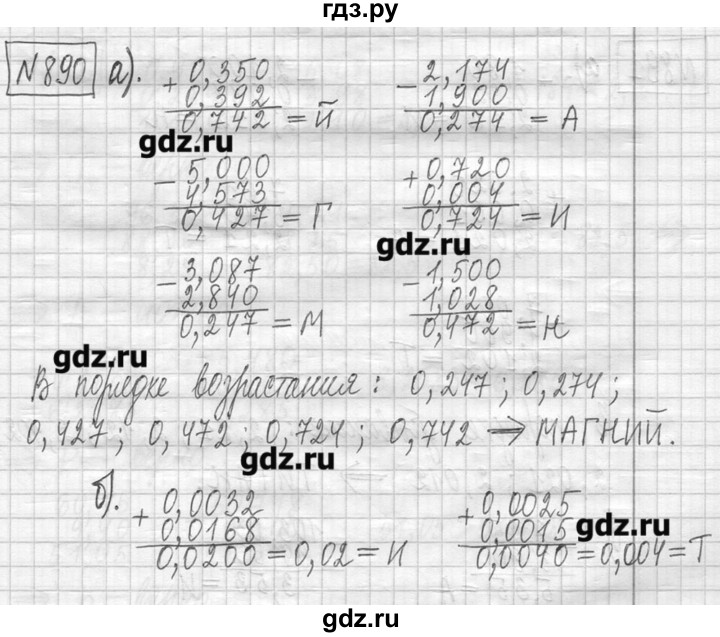 гдз.ру
N 890 а).
+ 0,350
0,392
0,742 = Й
- 2,174
1,900
0,274 = А
gdz.ru
- 5,000
4,573
0,427 = Г
+ 0,720
0,004
0,724 = И
gdz.ru
- 3,087
2,840
0,247 = М
- 1,500
1,028
0,472 = Н
gdz.ru
В порядке возрастания: 0,247; 0,274;
0,427; 0,472; 0,724; 0,742 ⇒ МАГНИЙ.
gdz.ru
б).
+ 0,0032
0,0168
0,0200 = 0,02 = И
+ 0,0025
0,0015
0,0040 = 0,004 = Т
gdz.ru
gdz.ru